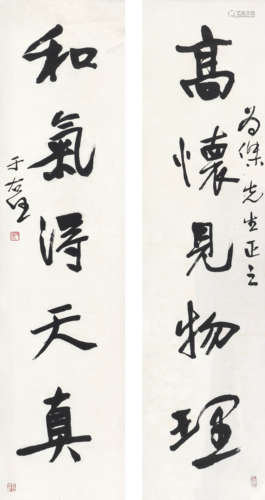 高懷見物理
為傑先生正之
和氣得天真
于右任